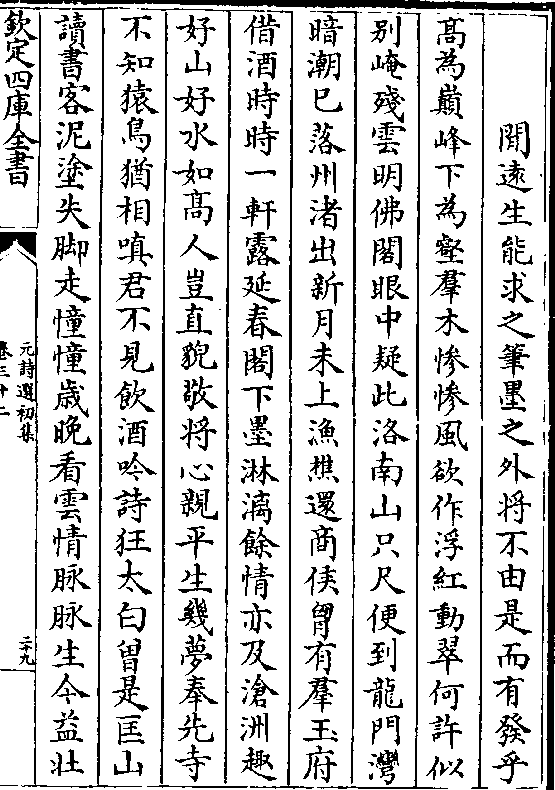 閒逺生能求之筆墨之外将不由是而有發乎
髙為巔峰下為壑羣木慘慘風欲作浮紅動翠何許似
别崦殘雲明佛閣眼中疑此洛南山只尺便到龍門灣
暗潮已落州渚出新月未上漁樵還商侯胷有羣玉府
借酒時時一軒露延春閣下墨淋漓餘情亦及滄洲趣
好山好水如髙人豈直貌敬将心親平生幾夢奉先寺
不知猿鳥猶相嗔君不見飲酒吟詩狂太白曾是匡山
讀書客泥塗失脚走憧憧歳晚看雲情脉脉生今益壮
欽定四庫全書
元詩選初集
卷三十二
二十九